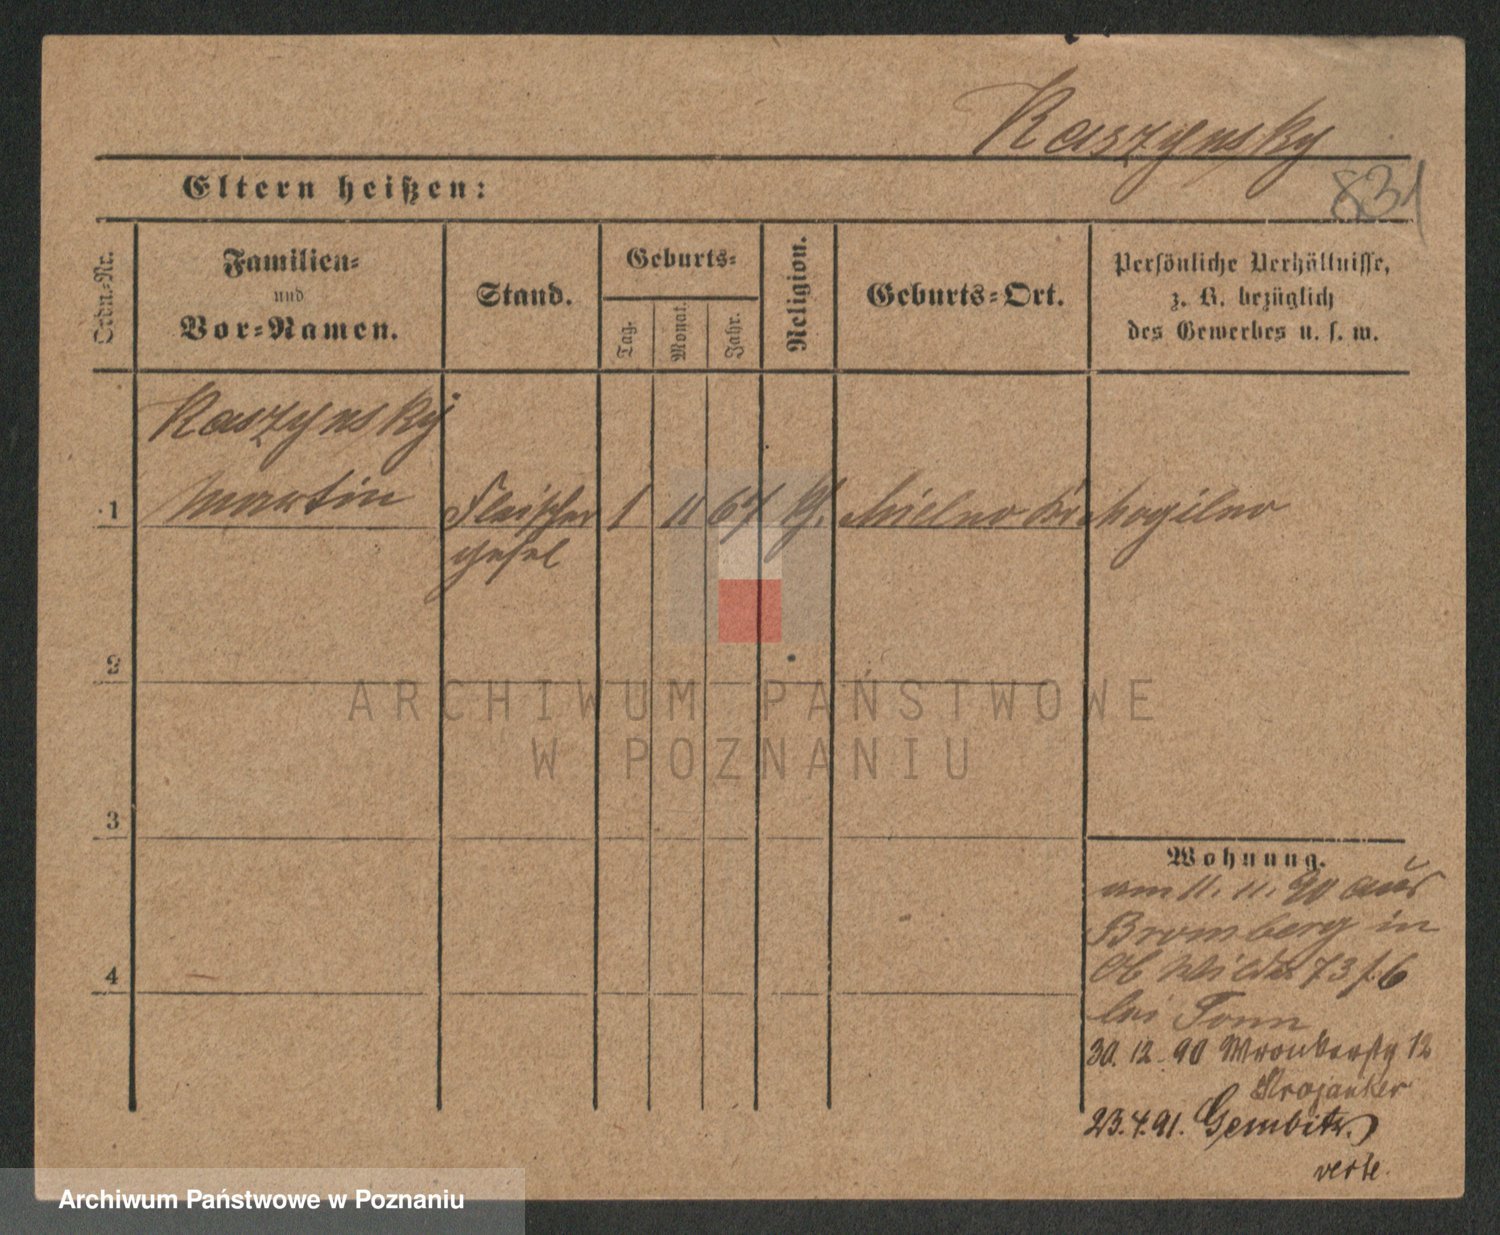 Raszynsky
831
Eltern heißen:
Ordn.-Nr.
Familien-
und
Vor-Namen.
Stand.
Geburts-
Tag.
Monat.
Jahr.
Religion.
Geburts-Ort.
Persönliche Verhältnisse,
z. B. bezüglich
des Gewerbes u. s. w.
Raszynsky
1 Martin Fleischer 1 11 67 Mielno Kr Mogilno
gesel
2
ARCHIWUM PAŃSTWOWE
W POZNANIU
3
Wohnung.
am 11. 11. 90 aus
Bromberg in
Ob Wilda 73 f. 6
bei Tonn
4
30. 12. 90 Wronkerstg 12
Krojanker
23.4.91. Gembitz
Archiwum Państwowe w Poznaniu